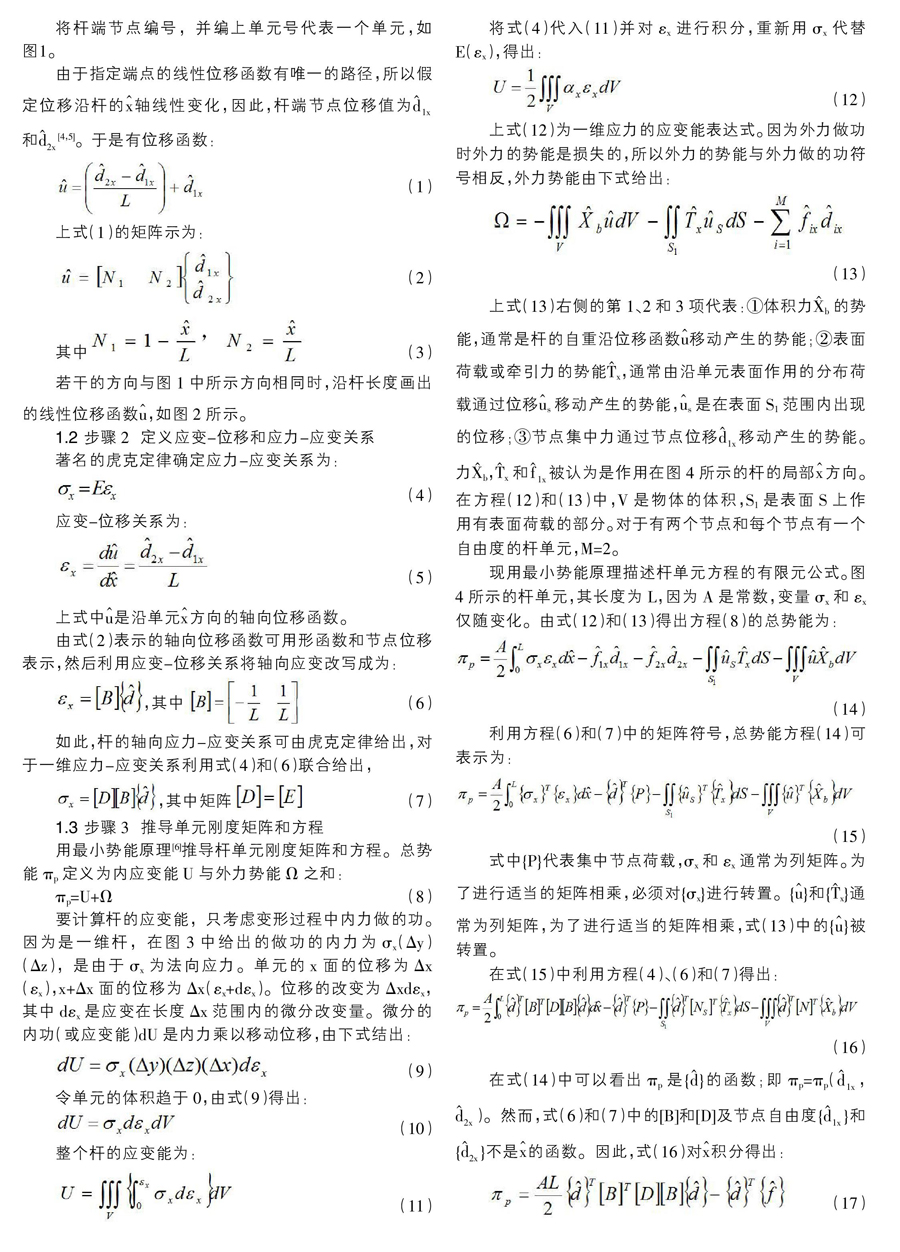 将杆端节点编号，并编上单元号代表一个单元，如
图1。
由于指定端点的线性位移函数有唯一的路径，所以假
定位移沿杆的x̂轴线性变化，因此，杆端节点位移值为d̂₁ₓ
和d̂₂ₓ[4,5]。于是有位移函数：
û = ((d̂₂ₓ − d̂₁ₓ)/L) + d̂₁ₓ (1)
上式(1)的矩阵示为：
û = [N₁ N₂]{d̂₁ₓ d̂₂ₓ} (2)
其中 N₁ = 1 − x̂/L， N₂ = x̂/L (3)
若干的方向与图1中所示方向相同时，沿杆长度画出
的线性位移函数û，如图2所示。
1.2 步骤2 定义应变-位移和应力-应变关系
著名的虎克定律确定应力-应变关系为：
σₓ=Eεₓ (4)
应变-位移关系为：
εₓ = dû/dx̂ = (d̂₂ₓ − d̂₁ₓ)/L (5)
上式中û是沿单元x̂方向的轴向位移函数。
由式(2)表示的轴向位移函数可用形函数和节点位移
表示，然后利用应变-位移关系将轴向应变改写成为：
εₓ = [B]{d̂}，其中 [B]=[−1/L 1/L] (6)
如此，杆的轴向应力-应变关系可由虎克定律给出，对
于一维应力-应变关系利用式(4)和(6)联合给出，
σₓ = [D][B]{d̂}，其中矩阵 [D]=[E] (7)
1.3 步骤3 推导单元刚度矩阵和方程
用最小势能原理[6]推导杆单元刚度矩阵和方程。总势
能 πp定义为内应变能U与外力势能Ω之和：
πp=U+Ω (8)
要计算杆的应变能，只考虑变形过程中内力做的功。
因为是一维杆，在图3中给出的做功的内力为σₓ(Δy)
(Δz)，是由于σₓ为法向应力。单元的x面的位移为Δx
(εₓ)，x+Δx面的位移为Δx(εₓ+dεₓ)。位移的改变为Δxdεₓ，
其中dεₓ是应变在长度Δx范围内的微分改变量。微分的
内功(或应变能)dU是内力乘以移动位移，由下式结出：
dU = σₓ(Δy)(Δz)(Δx)dεₓ (9)
令单元的体积趋于0，由式(9)得出：
dU = σₓdεₓdV (10)
整个杆的应变能为：
U = ∭_V {∫₀^εₓ σₓdεₓ}dV (11)
将式(4)代入(11)并对εₓ进行积分，重新用σₓ代替
E(εₓ)，得出：
U = 1/2 ∭_V αₓεₓdV (12)
上式(12)为一维应力的应变能表达式。因为外力做功
时外力的势能是损失的，所以外力的势能与外力做的功符
号相反，外力势能由下式给出：
Ω = −∭_V X̂_b ûdV − ∬_S₁ T̂ₓû_S dS − ∑_{i=1}^M f̂ᵢₓd̂ᵢₓ
(13)
上式(13)右侧的第1、2和3项代表：①体积力X̂_b的势
能，通常是杆的自重沿位移函数û移动产生的势能；②表面
荷载或牵引力的势能T̂ₓ，通常由沿单元表面作用的分布荷
载通过位移ûₛ移动产生的势能，ûₛ是在表面S₁范围内出现
的位移；③节点集中力通过节点位移d̂₁ₓ移动产生的势能。
力X̂_b，T̂ₓ和f̂₁ₓ被认为是作用在图4所示的杆的局部x̂方向。
在方程(12)和(13)中，V是物体的体积，S₁是表面S上作
用有表面荷载的部分。对于有两个节点和每个节点有一个
自由度的杆单元，M=2。
现用最小势能原理描述杆单元方程的有限元公式。图
4所示的杆单元，其长度为L，因为A是常数，变量σₓ和εₓ
仅随变化。由式(12)和(13)得出方程(8)的总势能为：
π_p = A/2 ∫₀^L σₓεₓdx̂ − f̂₁ₓd̂₁ₓ − f̂₂ₓd̂₂ₓ − ∬_S₁ û_S T̂ₓdS − ∭_V ûX̂_b dV
(14)
利用方程(6)和(7)中的矩阵符号，总势能方程(14)可
表示为：
π_p = A/2 ∫₀^L {σₓ}ᵀ{εₓ}dx̂ − {d̂}ᵀ{P} − ∬_S₁ {û_S}ᵀ{T̂ₓ}dS − ∭_V {û}ᵀ{X̂_b}dV
(15)
式中{P}代表集中节点荷载，σₓ和εₓ通常为列矩阵。为
了进行适当的矩阵相乘，必须对{σₓ}进行转置。{û}和{T̂ₓ}通
常为列矩阵，为了进行适当的矩阵相乘，式(13)中的{û}被
转置。
在式(15)中利用方程(4)、(6)和(7)得出：
π_p = A/2 ∫₀^L {d̂}ᵀ[B]ᵀ[D][B]{d̂}dx̂ − {d̂}ᵀ{P} − ∬_S₁ {d̂}ᵀ[N_S]ᵀ{T̂ₓ}dS − ∭_V {d̂}ᵀ[N]ᵀ{X̂_b}dV
(16)
在式(14)中可以看出πp是{d̂}的函数；即πp=πp(d̂₁ₓ，
d̂₂ₓ)。然而，式(6)和(7)中的[B]和[D]及节点自由度{d̂₁ₓ}和
{d̂₂ₓ}不是x̂的函数。因此，式(16)对x̂积分得出：
π_p = AL/2 {d̂}ᵀ[B]ᵀ[D][B]{d̂} − {d̂}ᵀ{f̂} (17)